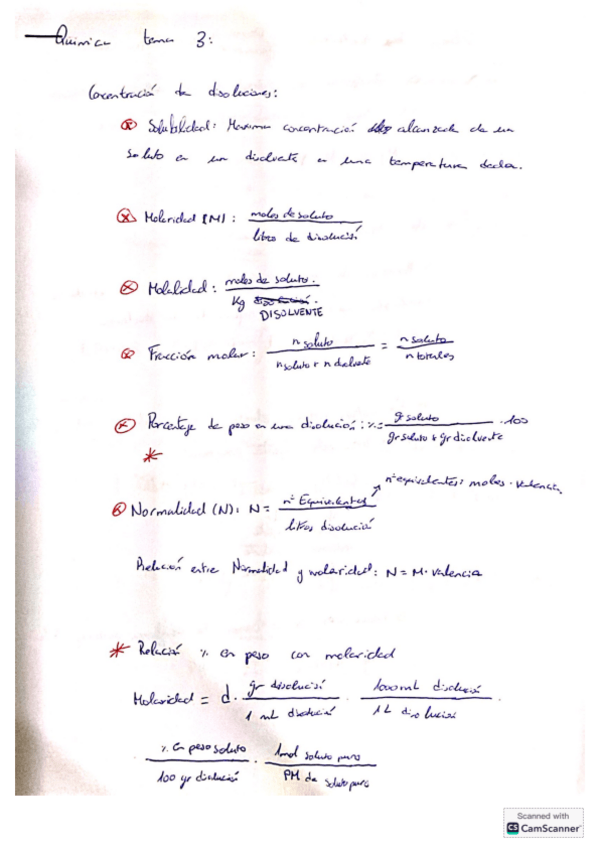 Quimica tema 3:
Concentración de disoluciones:
Solubilidad: Maxima concentración alcanzada de un
soluto en un disolvente a una temperatura dada.
Molaridad (M): moles de soluto
litro de disolución
Molalidad: moles de soluto.
Kg
DISOLVENTE
Fracción molar: n soluto / n soluto + n disolvente = n soluto / n totales
Porcentaje de peso en una disolución: %= gr soluto / gr soluto + gr disolvente · 100
*
nº equivalentes: moles · valencia
Normalidad (N): N = nº Equivalentes
litros disolución
Relación entre Normalidad y molaridad: N = M · valencia
* Relación % en peso con molaridad
Molaridad = d · gr disolución / 1 mL disolución · 1000 mL disolución / 1 L disolución ·
% en peso soluto / 100 gr disolución · 1mol soluto puro / PM de soluto puro
Scanned with
CS CamScanner